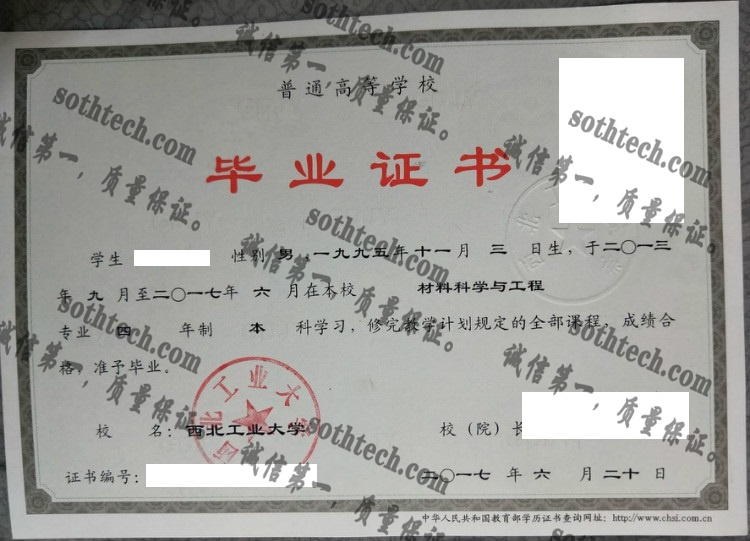 普通高等学校
毕业证书
学生 性别 男，一九九五年 十一月 三 日生，于二〇一三
年 九 月至二〇一七年 六 月在本校 材料科学与工程
专业 四 年制 本 科学习，修完教学计划规定的全部课程，成绩合
格，准予毕业。
校 名：西北工业大学
校（院）长
证书编号：
二〇一七 年 六 月 二十 日
中华人民共和国教育部学历证书查询网址：http://www.chsi.com.cn
西北工业大学
sothtech.com
诚信第一，质量保证。
sothtech.com
诚信第一，质量保证。
sothtech.com
诚信第一，质量保证。
sothtech.com
诚信第一，质量保证。
sothtech.com
诚信第一，质量保证。
sothtech.com
诚信第一，质量保证。
sothtech.com
诚信第一，质量保证。
sothtech.com
诚信第一，质量保证。